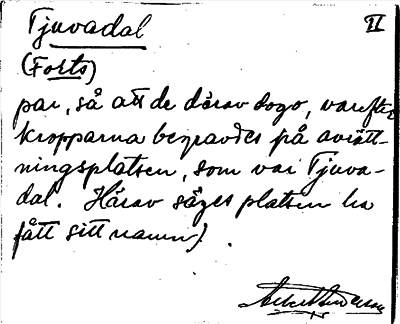 Tjuvadal
II
(Forts)
par, så att de därav dogo, varefter
kropparna begravdes på avrätt-
ningsplatsen, som var Tjuva-
dal. Härav säges platsen ha
fått sitt namn).